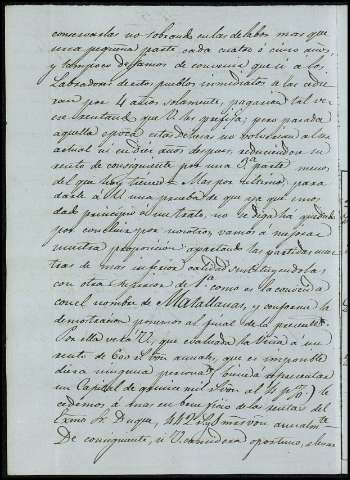 conservarlas no sobrando en las de labor mas que
una pequeña parte cada cuatro ó cinco años,
y tampoco dejamos de convenir que si a los
Labradores de estos pueblos inmediatos a las
ran por 4 años solamente, pagarian tal vez
ese que V. les prefija; pero pasada
aquella epoca estas tierras no volverian al ser
actual ni en diez años despues, reduciendose su
renta de consiguiente por una 3ª parte menos
del que hoy tiene. Mas por ultimo, para
darle á V. una prueba de que ya que hemos
dado principio á un trato, no se diga ha quedado
por concluir por nosotros, vamos á mejorar
nuestra proposicion apartando las partidas
de mas inferior calidad sustituyendolas
con otra superior de 1ª como es la conocida
con el nombre de Matallanas, y conforme la
demostracion ponemos al final de la presente.
Por ella verá V. que evaluada la Viña á un
renta de 600 rs. von anuales, que es imposible
diera ninguna persona (pues vendrá á representar
un Capital de quince mil rs. von al 4 p%) le
cedemos á mas en beneficio de las rentas del
Exmo Sr. Duque, 442 rs. mas von anualmte.
De consiguiente, si V. considera oportuno,